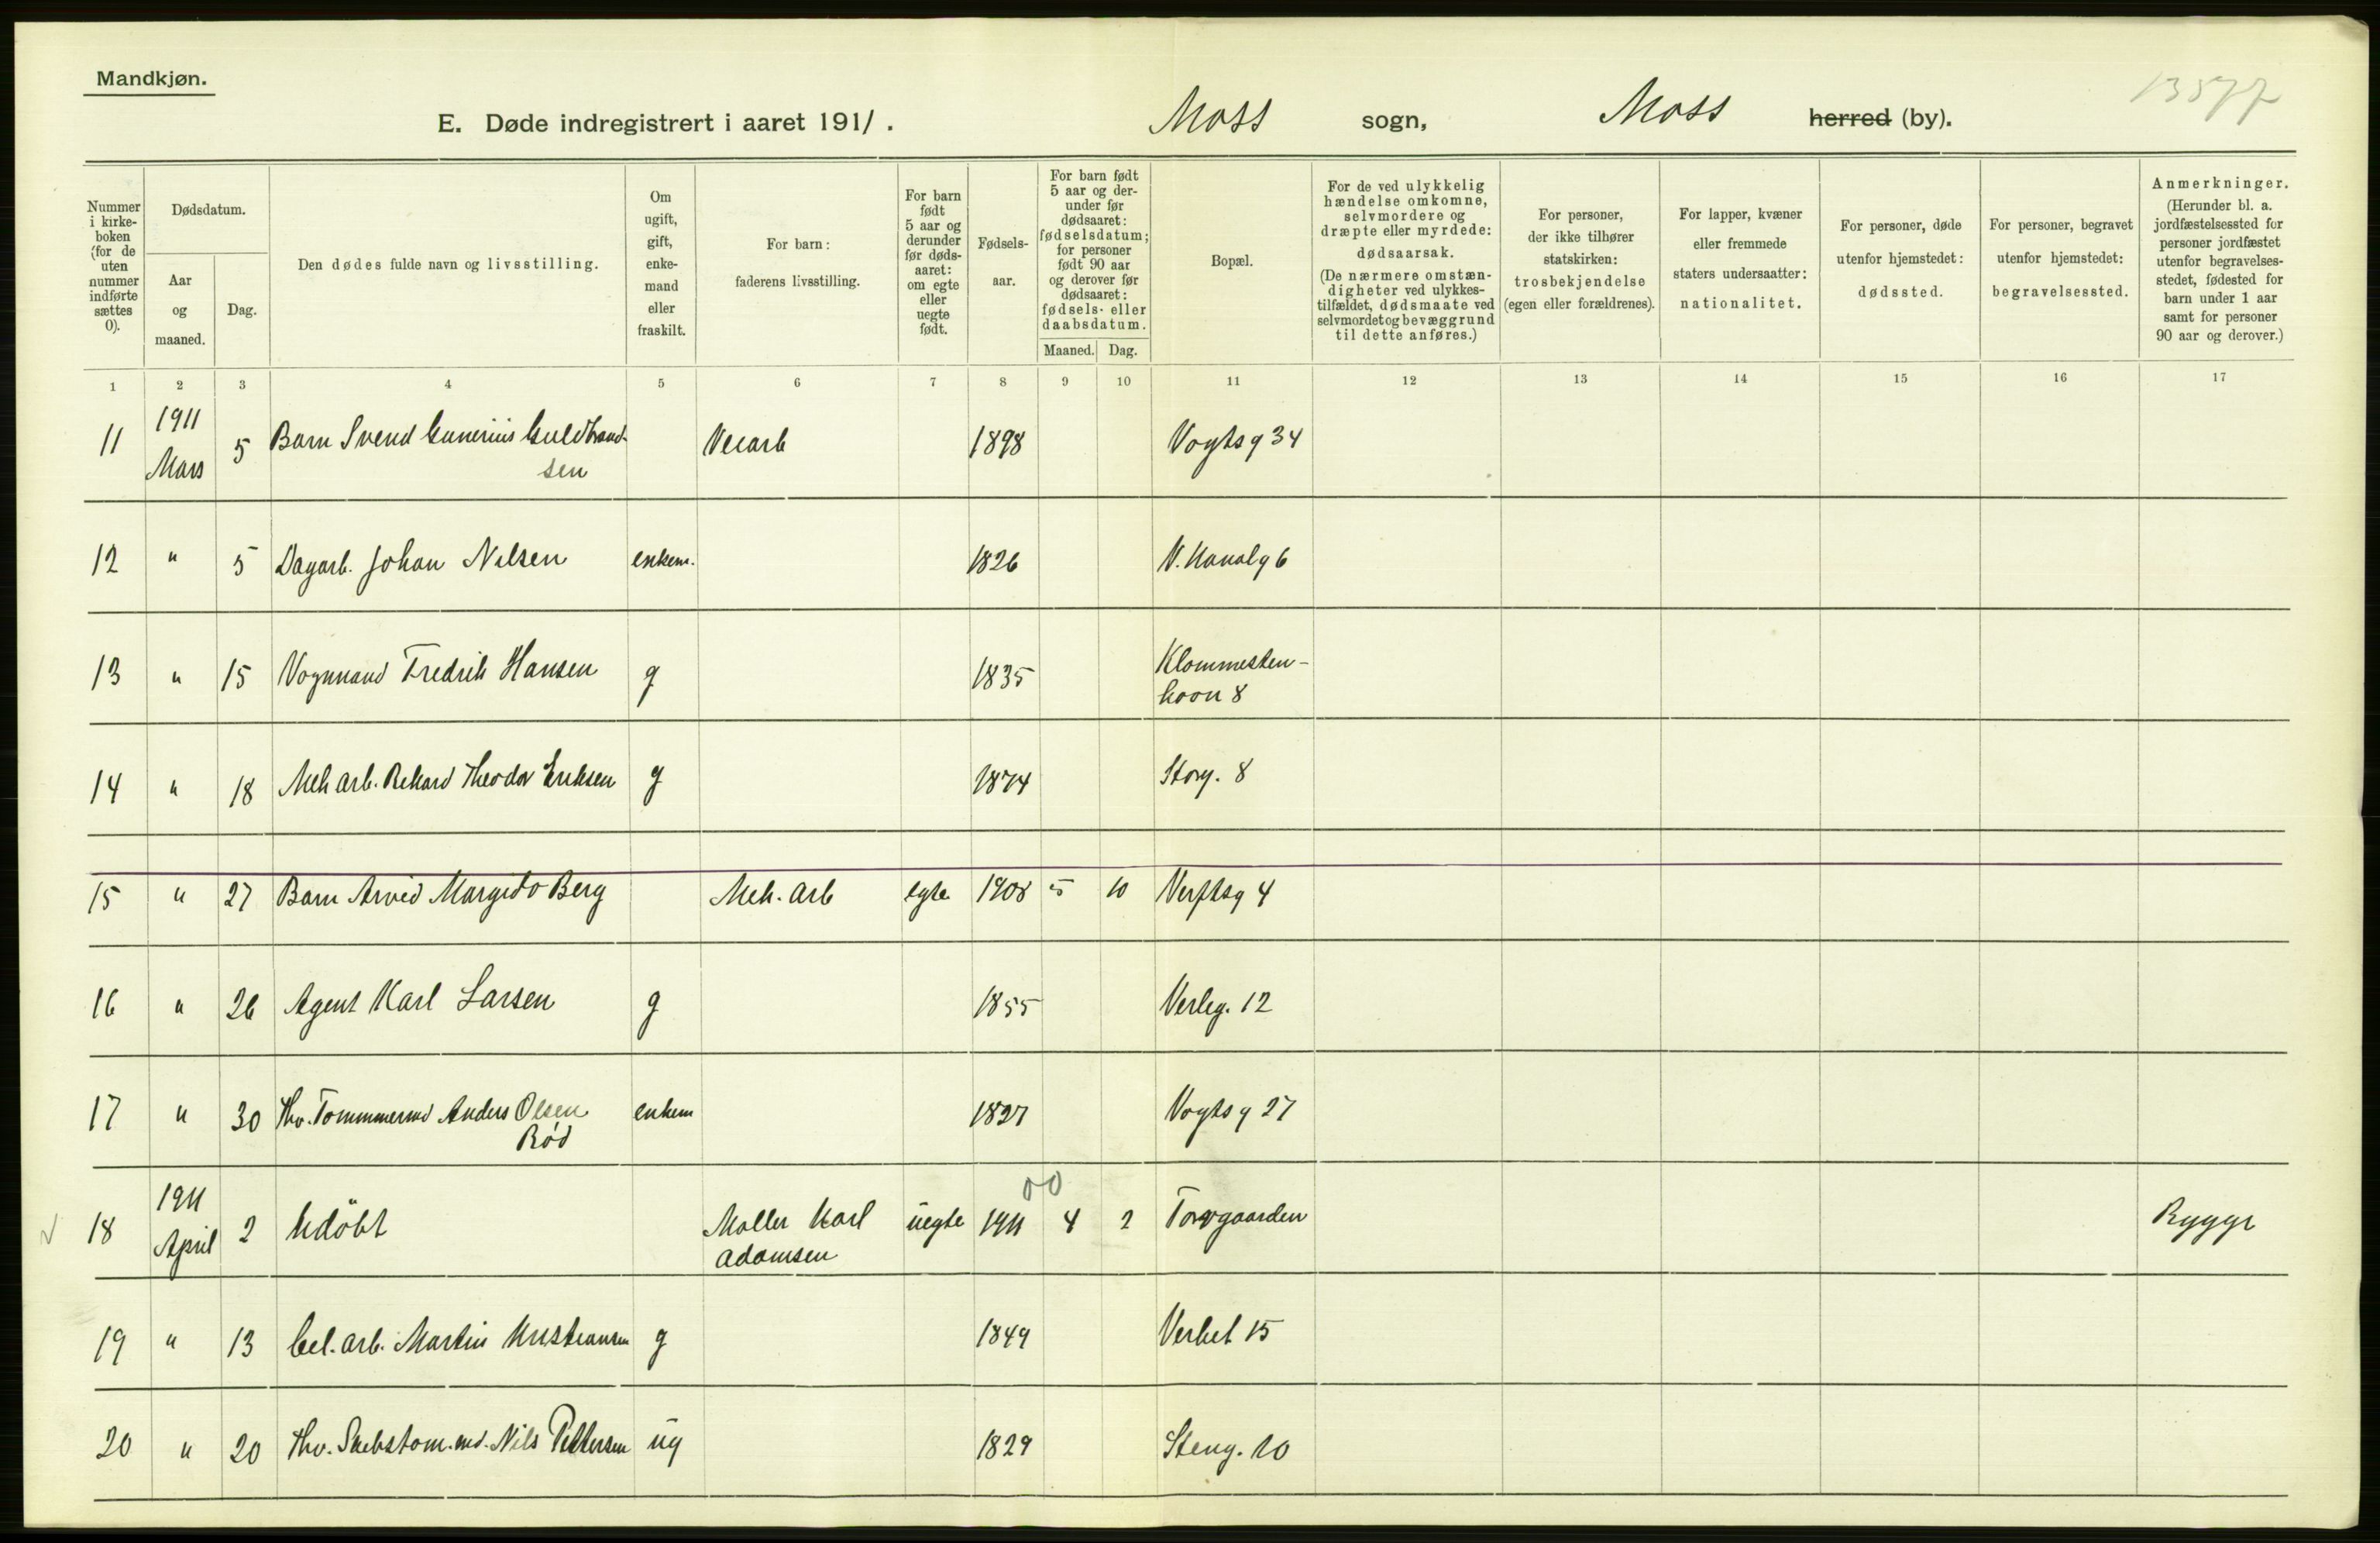 Mandkjøn.
13577
E. Døde indregistrert i aaret 1911. Moss sogn, Moss herred (by).
Nummer i kirke-boken (for de uten nummer indførte sættes 0).
Dødsdatum.
Aar og maaned.
Dag.
Den dødes fulde navn og livsstilling.
Om ugift, gift, enke-mand eller fraskilt.
For barn: faderens livsstilling.
For barn født 5 aar og derunder før døds-aaret: om egte eller uegte født.
Fødsels-aar.
For barn født 5 aar og der-under før dødsaaret: fødselsdatum; for personer født 90 aar og derover før dødsaaret: fødsels- eller daabsdatum.
Maaned. Dag.
Bopæl.
For de ved ulykkelig hændelse omkomne, selvmordere og dræpte eller myrdede: dødsaarsak. (De nærmere omstæn-digheter ved ulykkes-tilfældet, dødsmaate ved selvmordet og bevæggrund til dette anføres.)
For personer, der ikke tilhører statskirken: trosbekjendelse (egen eller forældrenes).
For lapper, kvæner eller fremmede staters undersaatter: nationalitet.
For personer, døde utenfor hjemstedet: dødssted.
For personer, begravet utenfor hjemstedet: begravelsessted.
Anmerkninger. (Herunder bl. a. jordfæstelsessted for personer jordfæstet utenfor begravelses-stedet, fødested for barn under 1 aar samt for personer 90 aar og derover.)
1 2 3 4 5 6 7 8 9 10 11 12 13 14 15 16 17
11 1911 Mars 5 Barn Svend Gunerius Guldbrand-sen Veiarb 1898 Vogtsg 34
12 " 5 Dagarb. Johan Nilsen enkem. 1826 V. Kanalg 6
13 " 15 Vognmand Fredrik Hansen g 1835 Klommesten-hoon 8
14 " 18 Mek arb. Rikard Theodor Eriksen g 1874 Storg. 8
15 " 27 Barn Arvid Margido Berg Mek. arb egte 1908 5 10 Verftsg 4
16 " 26 Agent Karl Larsen g 1855 Verleg. 12
17 " 30 Fhv. Tømmermd Anders Olsen Rød enkem 1827 Vogtsg 27
18 1911 April 2 Udöbt Møller Karl Adamsen uegte 1911 00 4 2 Torvgaarden Rygge
19 " 13 Cel. arb. Martin Kristiansen g 1849 Verket 15
20 " 20 Fhv. Skibstøm.md. Nils Pettersen ug 1829 Steng. 10